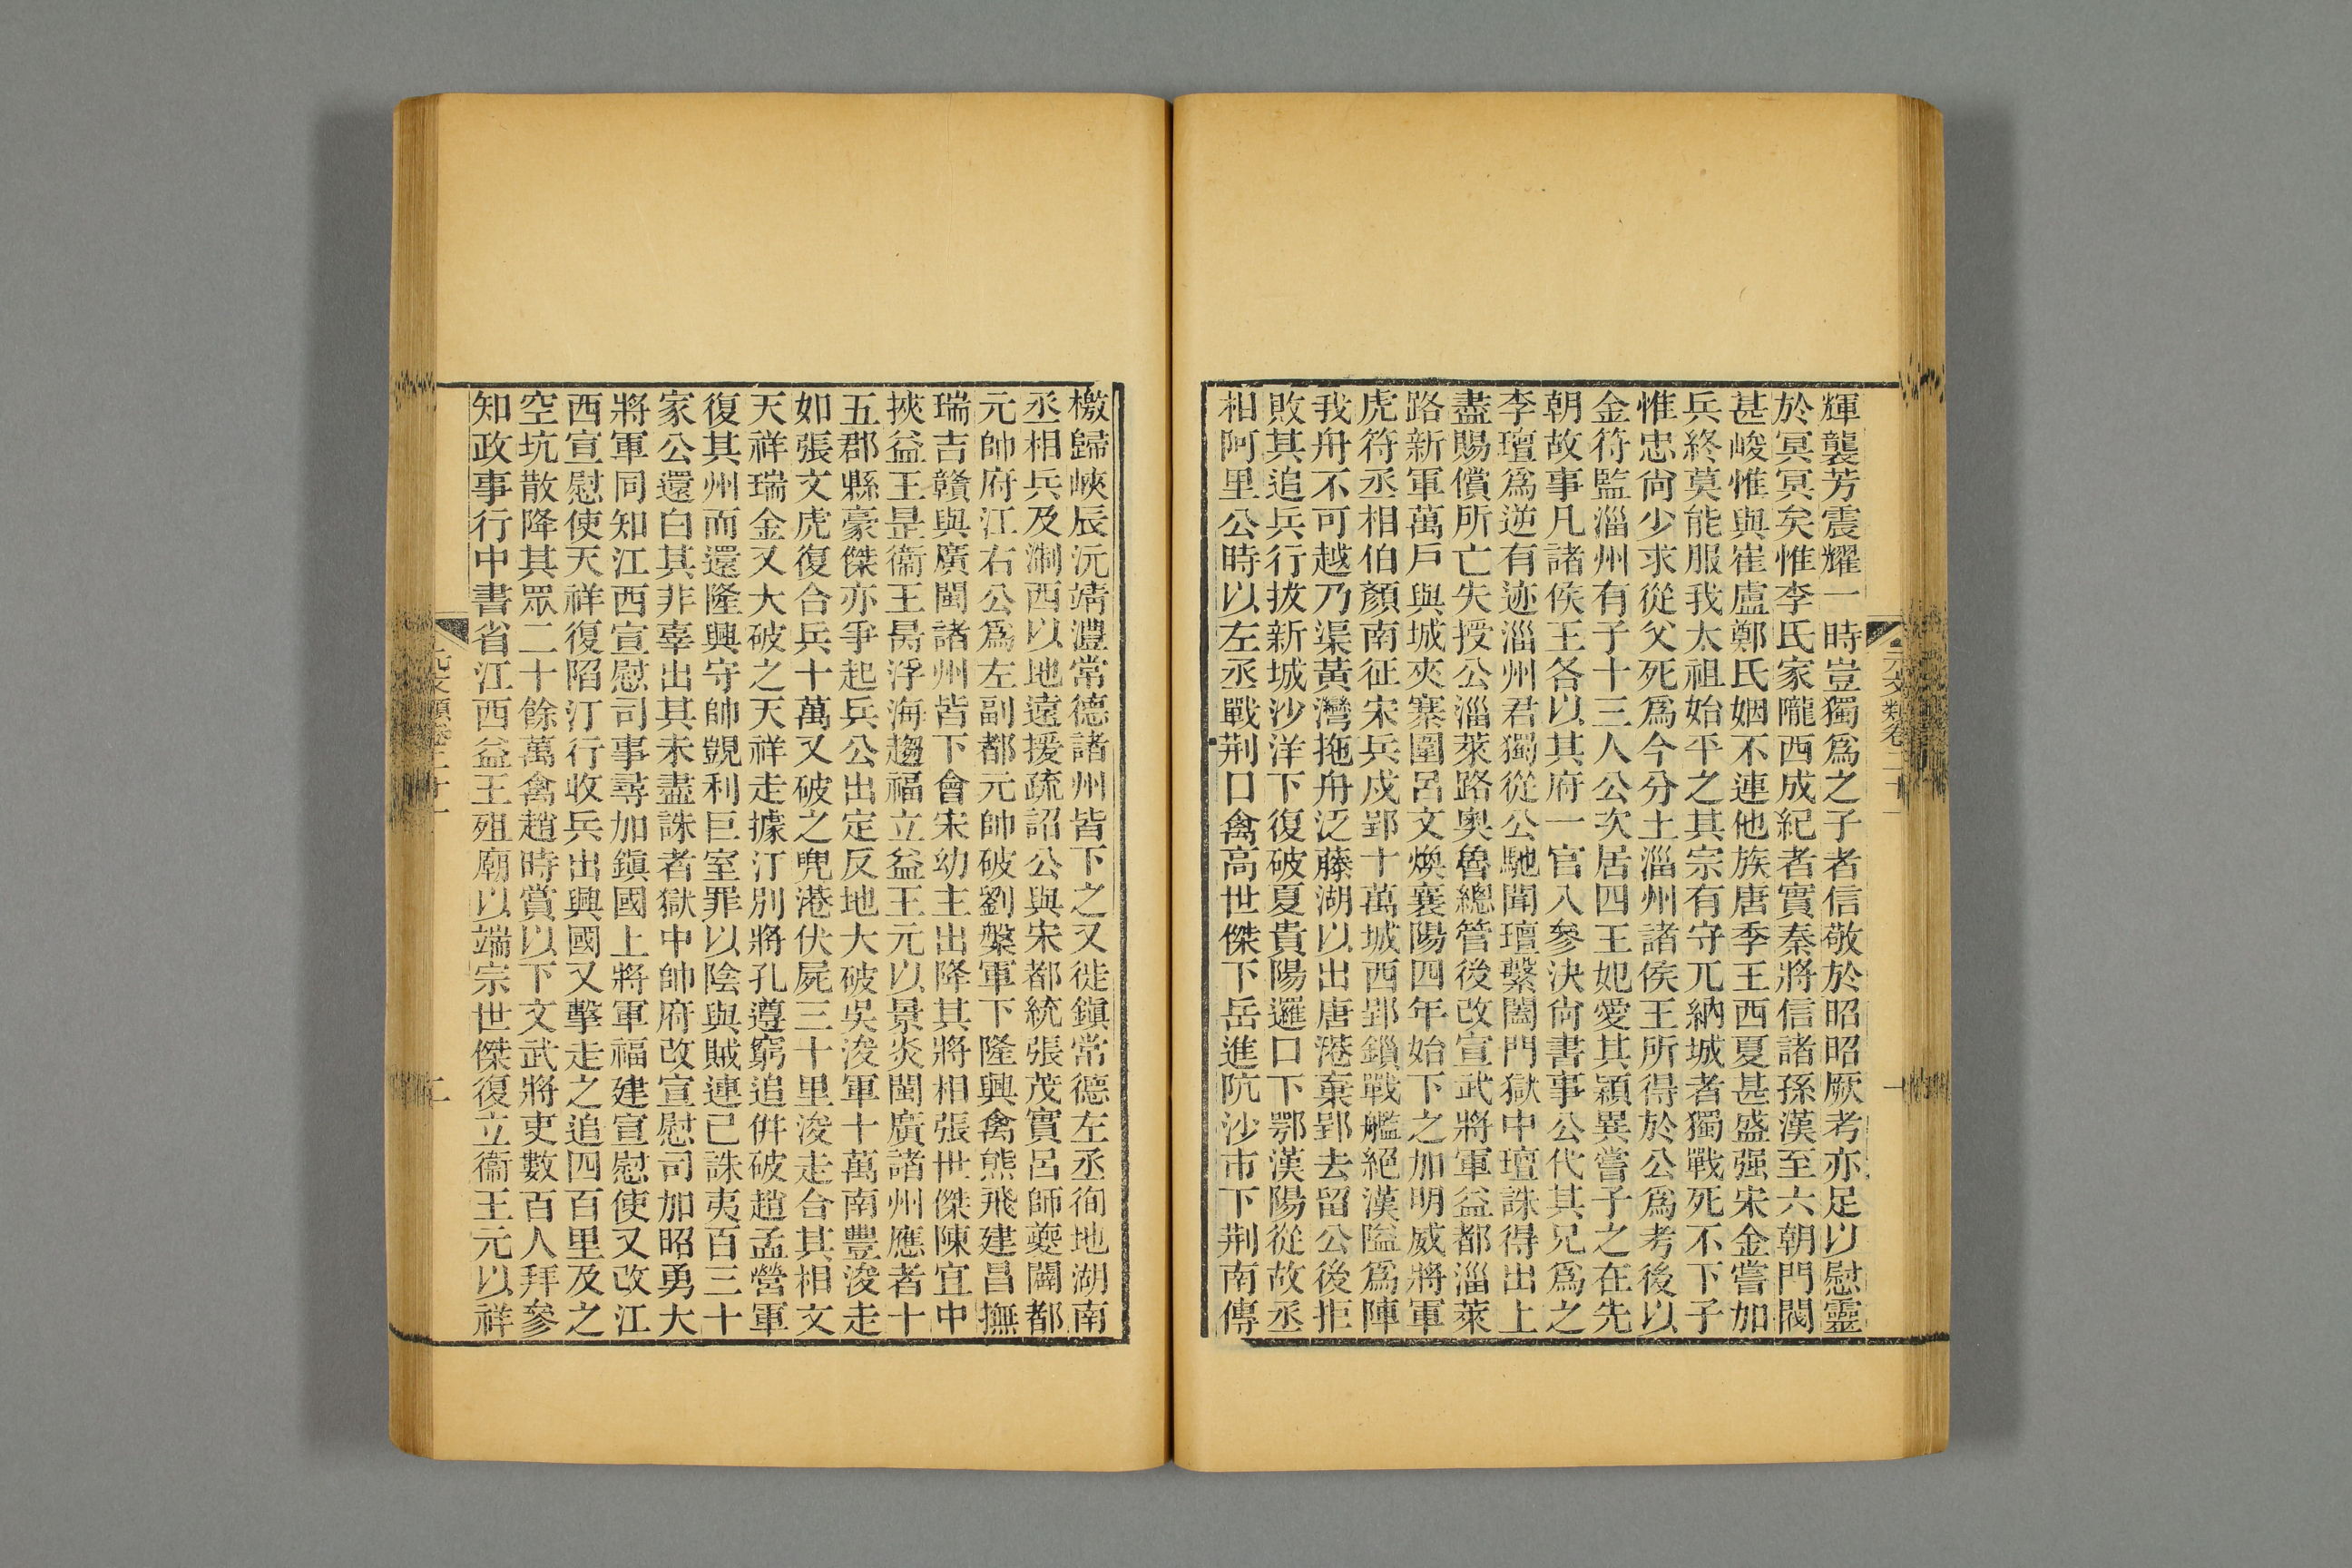 輝襲芳震耀一時豈獨爲之子者信敬於昭昭厥考亦足以慰靈
於冥冥矣惟李氏家隴西成紀者實秦將信諸孫漢至六朝門閥
甚峻惟與崔盧鄭氏姻不連他族唐季王西夏甚盛强宋金嘗加
兵終莫能服我太祖始平之其宗有守兀納城者獨戰死不下子
惟忠尙少求從父死爲今分土淄州諸侯王所得於公爲考後以
金符監淄州有子十三人公次居四王妃愛其穎異嘗子之在先
朝故事凡諸侯王各以其府一官入參決尙書事公代其兄爲之
李璮爲逆有迹淄州君獨從公馳聞璮繫闔門獄中璮誅得出上
盡賜償所亡失授公淄萊路奥魯總管後改宣武將軍益都淄萊
路新軍萬戶與城夾寨圍呂文煥襄陽四年始下之加明威將軍
虎符丞相伯顏南征宋兵戍郢十萬城西郢鎖戰艦絕漢隘爲陣
我舟不可越乃渠黃灣拖舟泛藤湖以出唐港棄郢去留公後拒
敗其追兵行拔新城沙洋下復破夏貴陽邏口下鄂漢陽從故丞
相阿里公時以左丞戰荆口禽高世傑下岳進阬沙市下荆南傳
檄歸峽辰沅靖澧常德諸州皆下之又徙鎭常德左丞徇地湖南
丞相兵及淛西以地遠援疏詔公與宋都統張茂實呂師夔闢都
元帥府江右公爲左副都元帥破劉槃軍下隆興禽熊飛建昌撫
瑞吉贛與廣閩諸州皆下會宋幼主出降其將相張世傑陳宜中
挾益王昰衞王昺浮海趨福立益王元以景炎閩廣諸州應者十
五郡縣豪傑亦爭起兵公出定反地大破吳浚軍十萬南豐浚走
如張文虎復合兵十萬又破之兜港伏屍三十里浚走合其相文
天祥瑞金又大破之天祥走據汀別將孔遵窮追倂破趙孟營軍
復其州而還隆興守帥覬利巨室罪以陰與賊連已誅夷百三十
家公還白其非辜出其未盡誅者獄中帥府改宣慰司加昭勇大
將軍同知江西宣慰司事尋加鎭國上將軍福建宣慰使又改江
西宣慰使天祥復陷汀行收兵出興國又擊走之追四百里及之
空坑散降其眾二十餘萬禽趙時賞以下文武將吏數百人拜參
知政事行中書省江西益王殂廟以端宗世傑復立衞王元以祥
元文類卷二十一
一